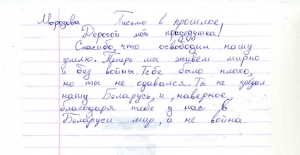 Морозова Письмо в прошлое
Дорогой мой прадедушка!
Спасибо, что освободил нашу
землю. Теперь мы живём мирно
и без войны. Тебе было плохо,
но ты не сдавался. Ты не предал
нашу Беларусь, и, наверное,
благодаря тебе у нас в
Беларуси мир, а не война.